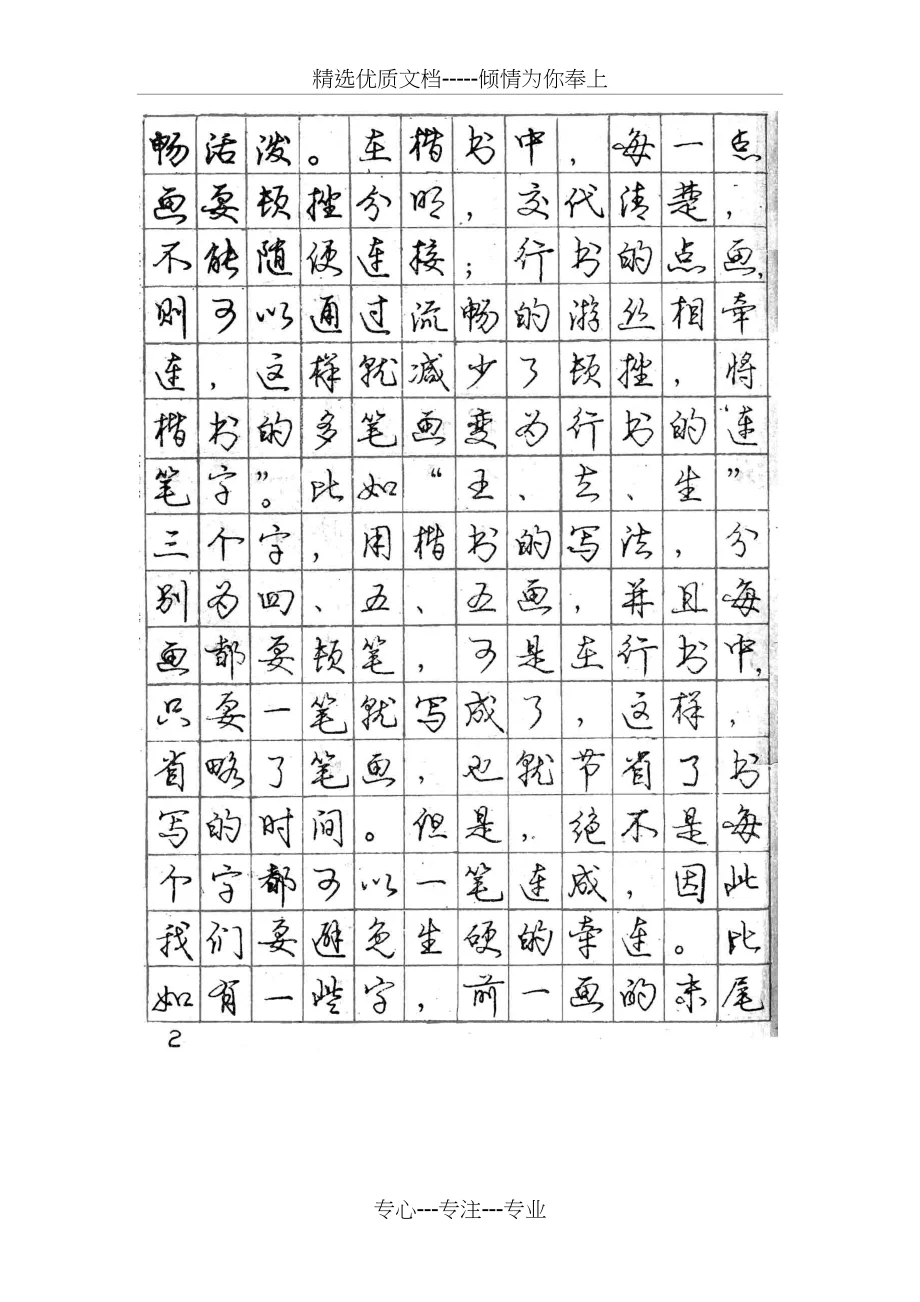 精选优质文档-----倾情为你奉上
畅活泼。在楷书中，每一点
画要顿挫分明，交代清楚，
不能随便连接；行书的点画，
则可以通过流畅的游丝相牵
连，这样就减少了顿挫，将
楷书的多笔画变为行书的“连
笔字”。比如“王、去、生”
三个字，用楷书的写法，分
别为四、五、五画，并且每
画都要顿笔，可是在行书中，
只要一笔就写成了，这样，
省略了笔画，也就节省了书
写的时间。但是，绝不是每
个字都可以一笔连成，因此
我们要避免生硬的牵连。比
如有一些字，前一画的末尾
2
专心---专注---专业